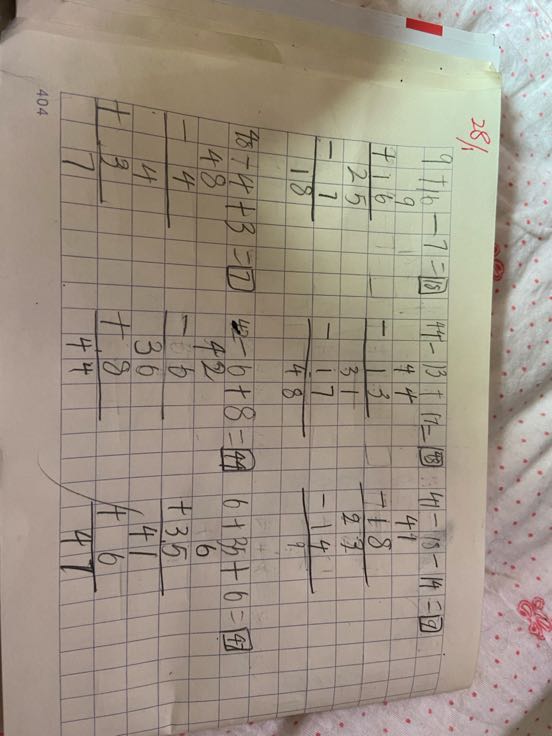 28/1
9+16-7=18 44-13+17=48 41-18-14=9
9 44 41
+16 -13 -18
25 31 23
-7 -17 -14
18 48 9
48-4+3=7 42-6+8=44 6+35+6=47
48 42 6
-4 -6 +35
4 36 41
+3 +8 +6
7 44 47
404